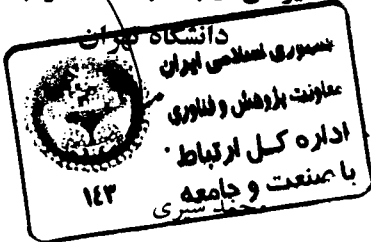 دانشگاه تهران
جمهوری اسلامی ایران
معاونت پژوهش و فناوری
اداره کل ارتباط
با صنعت و جامعه
۱۴۳